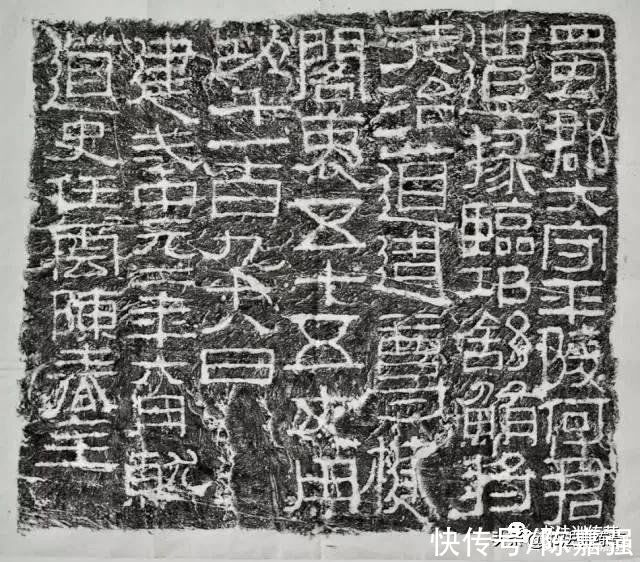 蜀郡大守平陵何君
遣掾臨邛舒鮪將
徒治道造尊楗
閣袤五十五丈用
功千一百九十八日
建武中元二年六月就
道史任雲陳春主
快传号/陈嘉强